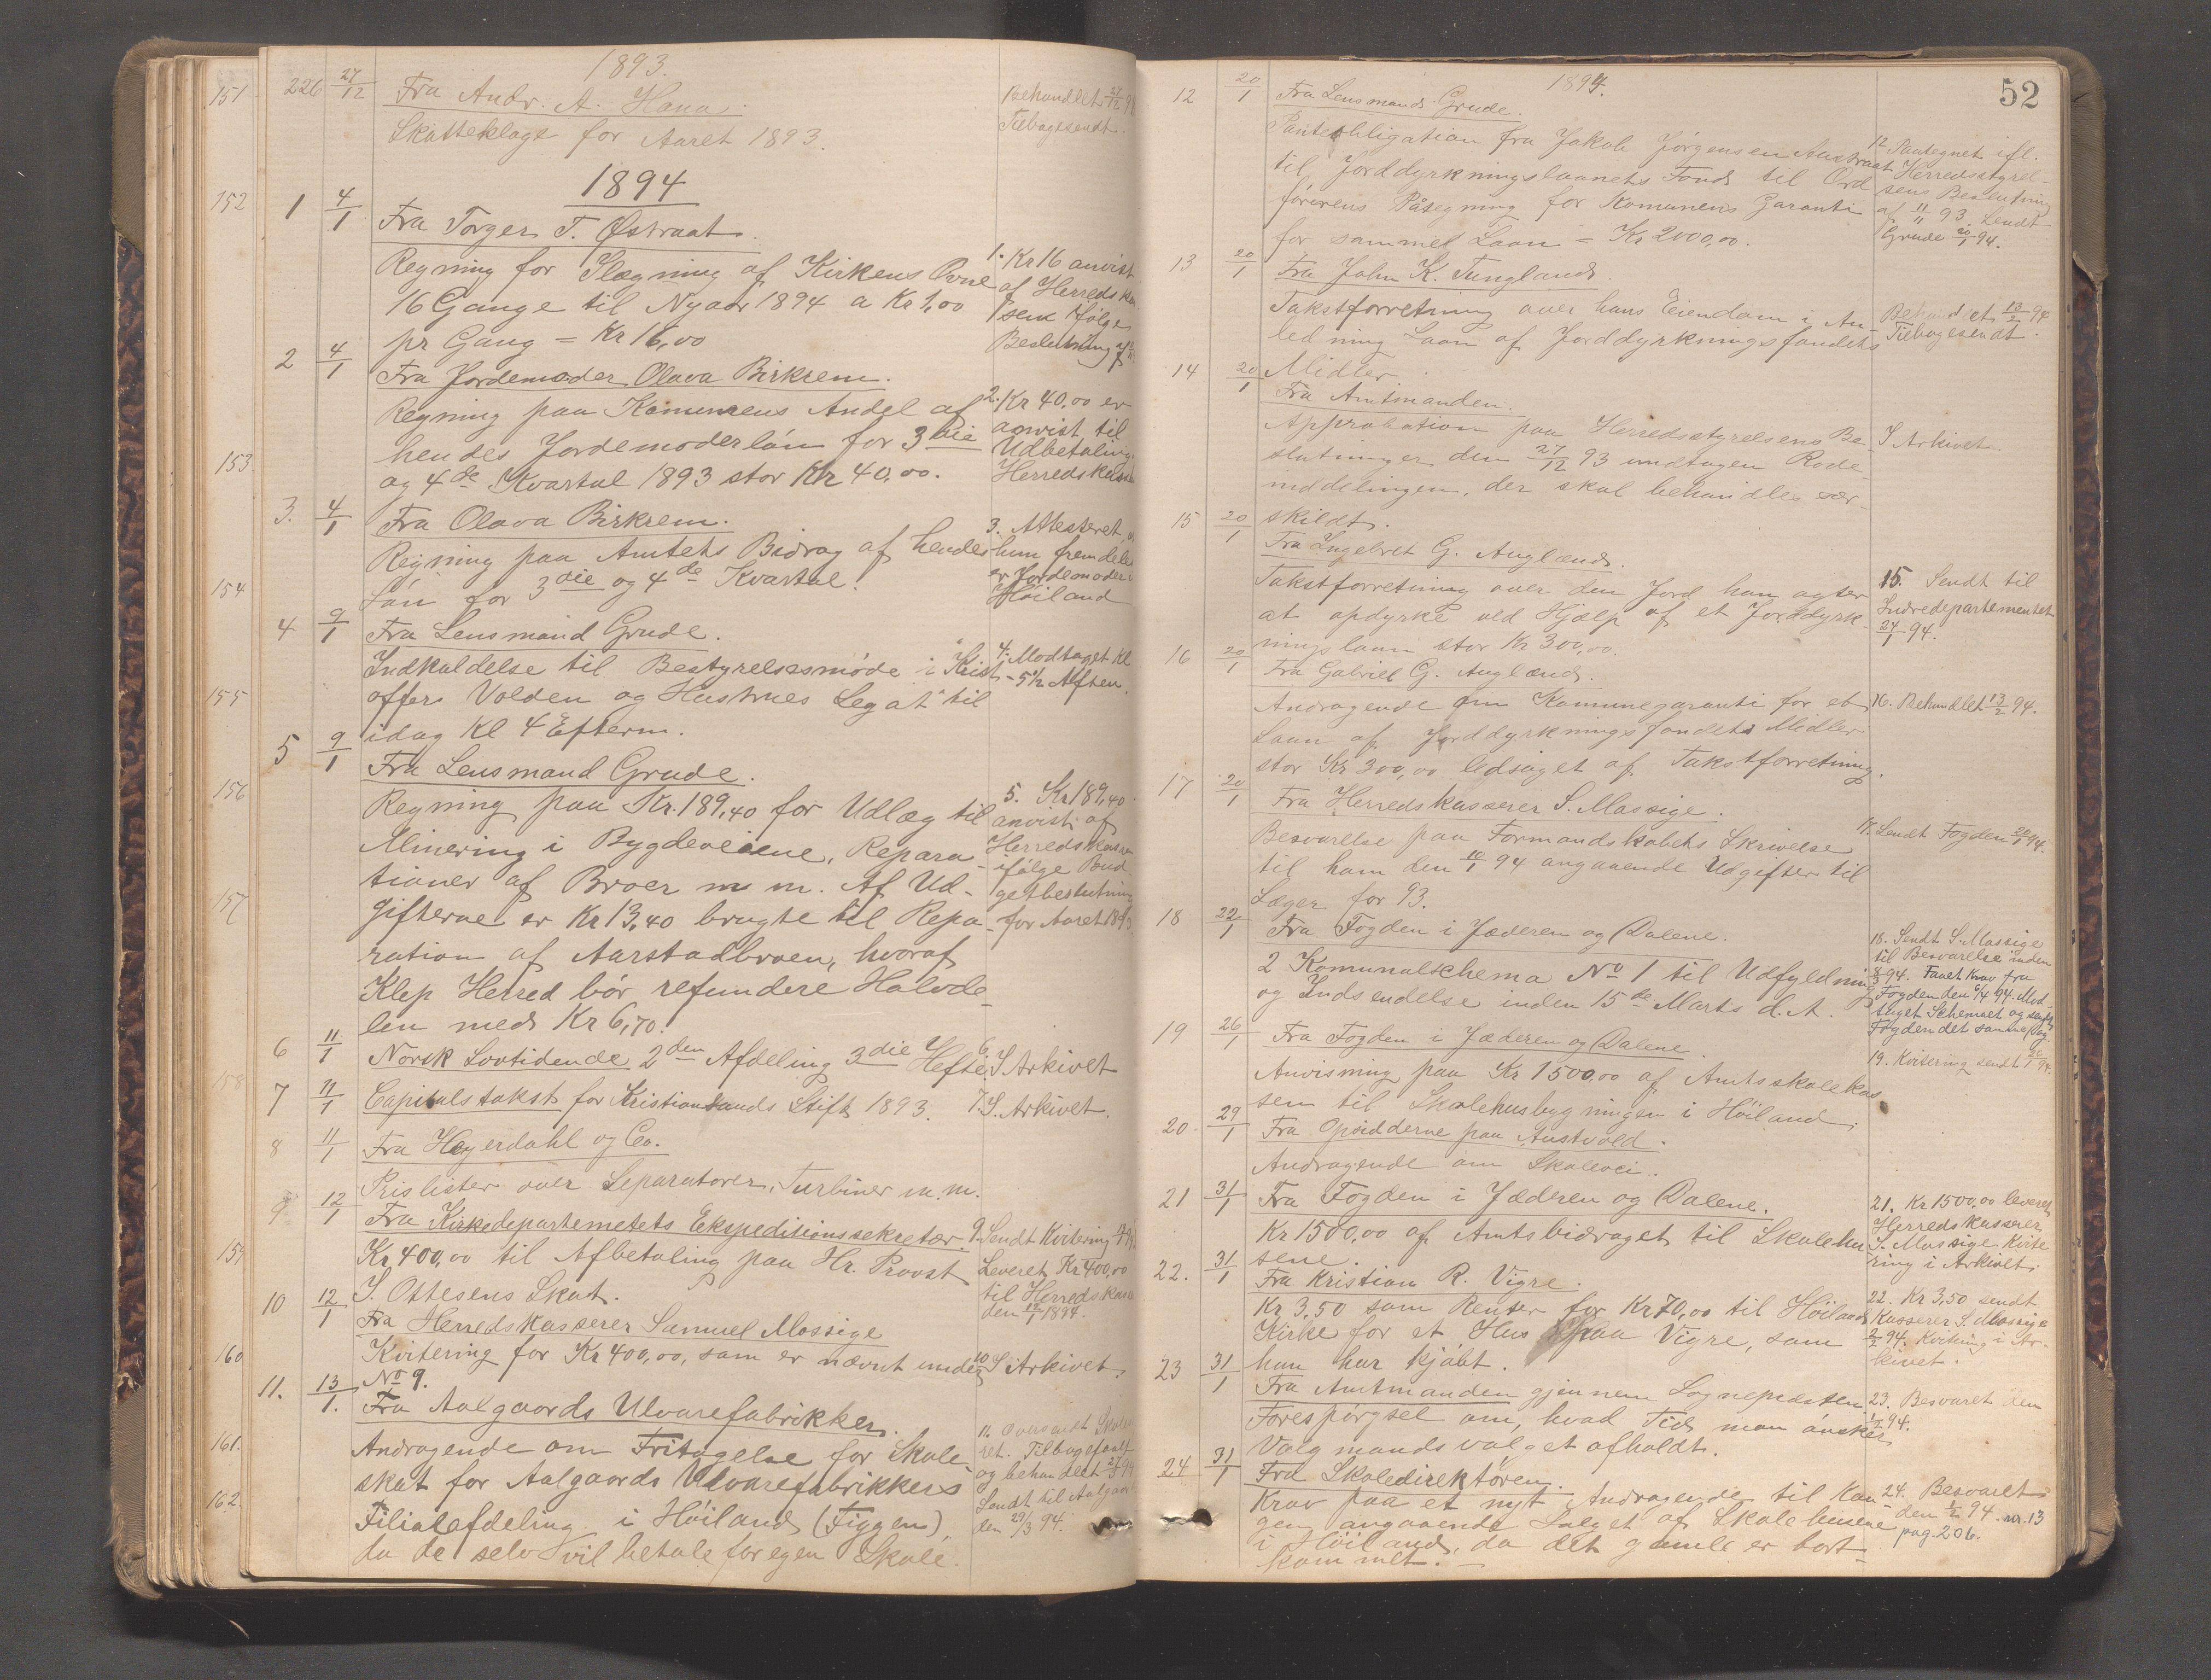 1893.
226 27/12 Fra Andr. A. Hana. Behandlet
Skatteklage for Aaret 1893. Tilbagesendt.
1894
1 4/1 Fra Torger T. Østraat.
Regning for Ilægning af Kirkens Ovne 1. Kr 16 anvist
16 Gange til Nyaar 1894 a Kr 1,00 af Herredskas
pr Gang = Kr 16,00 Beslutning af
2 4/1 Fra Jordemoder Olava Birkrem.
Regning paa Komunens Andel af 2. Kr 40,00 er
hendes Jordemoderløn for 3die anvist til
og 4de Kvartal 1893 stor Kr 40,00. Udbetaling
Herredskassen
3. 4/1 Fra Olava Birkrem.
Regning paa Amtets Bidrag af hendes 3. Attesteret, at
Løn for 3die og 4de Kvartal. hun fremdeles
er Jordemoder i
Høiland
4 9/1 Fra Lensmand Grude.
Indkaldelse til Bestyrelsesmøde i "Krist- 4. Modtaget Kl
offer Volden og Hustrues Legat" til 5 1/2 Aften.
idag Kl 4 Efterm.
5 9/1 Fra Lensmand Grude.
Regning paa Kr. 189,40 for Udlæg til 5. Kr 189,40
Minering i Bygdeveiene, Repara- anvist af
tioner af Broer m m. Af Ud- Herredskassen
gifterne er Kr 13,40 brugte til Repa- ifølge Bud
ration af Aarstadbroen, hvoraf getbeslutning
Klep Herred bør refundere Halvde- for Aaret 1893
len med Kr 6,70.
6 11/1 Norsk Lovtidende 2den Afdeling 3die Hefte. 6. I Arkivet
7 11/1 Capitelstakst for Kristiansands Stift 1893. 7. I Arkivet.
8 11/1 Fra Heyerdahl og Co.
Prislister over Separatorer, Turbiner m. m.
9 12/1 Fra Kirkedepartemetets Ekspeditionssekretær. 9. Sendt Kvitering
Kr. 400,00 til Afbetaling paa Hr. Provst Leveret Kr 400,00
I. Ottesens Skat. til Herredskas
den 12/1 1894.
10 12/1 Fra Herredskasserer Samuel Mossige
Kvitering for Kr 400,00, som er nævnt under 10. I Arkivet.
No 9.
11. 13/1. Fra Aalgaards Uldvarefabrikker.
Andragende om Fritagelse for Skole-
skat for Aalgaards Uldvarefabrikkers og behandlet
Filialafdeling i Høiland (Figgen), Sendt til Aalgaar
da de selv vil betale for egen Skole. den 29/3 94.
151
152
153
154
155
156
157
158
159
160
161.
162.
52
1894.
12 20/1 Fra Lensmand Grude.
Panteobligation fra Jakob Jørgensen Austraat 12 Paategnet ifl.
til Jorddyrkningslaanets Fond til Ord Herredsstyrel-
førerens Påtegning for Komunens Garanti sens Beslutning
for sammes Laan = Kr 2000,00. af 11/11 93. Sendt
Grude 20/1 94.
13 20/1 Fra John K. Tunglands.
Takstforretning over hans Eiendom i An- Behandlet 13/2 94
ledning Laan af Jorddyrkningsfondets Tilbagesendt.
Midler.
14 20/1 Fra Amtmanden.
Approbation paa Herredsstyrelsens Be- I Arkivet.
slutninger den 27/12 93 undtagen Rode-
inddelingen, der skal behandles sær-
skildt.
15 20/1 Fra Ingebret G. Auglænd.
Takstforretning over den Jord han agter 15. Sendt til
at opdyrke ved Hjælp af et Jorddyrk- Indredepartementet
ningslaan stor Kr 300,00. 24/1 94.
16 20/1 Fra Gabriel G. Auglænd.
Andragende om Komunegaranti for et 16. Behandlet 13/2 94.
Laan af Jorddyrkningsfondets Midler
stor Kr 300,00 ledsaget af Takstforretning.
17 20/1 Fra Herredskasserer S. Mossige.
Besvarelse paa Formandskabets Skrivelse 17. Sendt Fogden 20/1 94.
til ham den 10/1 94 angaaende Udgifter til
Læger for 93.
18 22/1 Fra Fogden i Jæderen og Dalene.
2 Komunalschema No 1 til Udfyldning 18. Sendt S. Mossige
og Indsendelse inden 15de Marts d. A. til Besvarelse inden
8/3 94. Faaet Krav fra
Fogden den 6/4 94. Mod-
taget Schemaet og sendt
Fogden det samme Dag.
19 26/1 Fra Fogden i Jæderen og Dalene.
Anvisning paa Kr 1500,00 af Amtsskolekas 19. Kvitering sendt
sen til Skolehusbygningen i Høiland.
20. 29/1 Fra Opsidderne paa Austvold.
Andragende om Skolevei.
21 31/1 Fra Fogden i Jæderen og Dalene. 21. Kr 1500,00 leveret
Kr 1500,00 af Amtsbidraget til Skolehu- Herredskasserer
sene. S. Mossige Kvite
ring i Arkivet.
22. 31/1 Fra Kristian R. Vigre.
Kr 3,50 som Renter for Kr 70,00 til Høilands 22. Kr 3,50 sendt
Kirke for et Hus paa Vigre, som Kasserer S. Mossige
han har kjøbt. 2/2 94. Kvitering i Ar-
kivet.
23 31/1 Fra Amtmanden gjennem Sognepresten. 23. Besvaret den
Forespørgsel om, hvad Tid man ønsker 1/2 94.
Valgmandsvalget afholdt.
24 31/1 Fra Skoledirektøren.
Krav paa et nyt Andragende til Kon- 24. Besvaret
gen angaaende Salget af Skolehusene den 1/2 94. nr. 13
i Høiland, da det gamle er bort- pag. 206.
kommet.